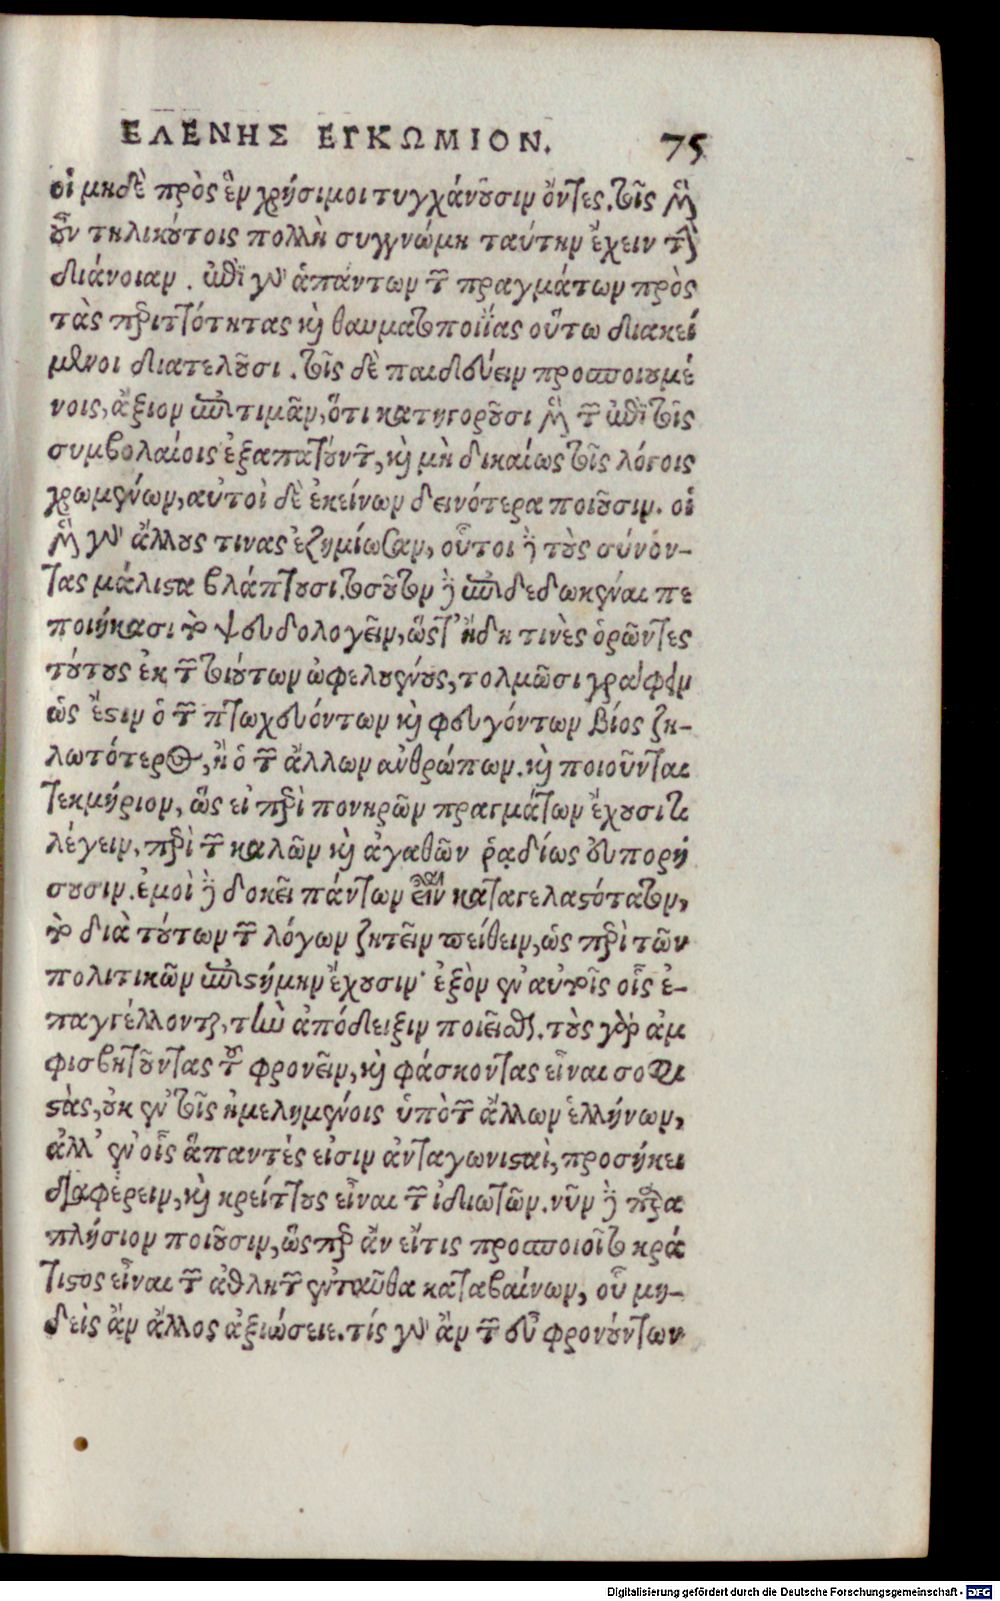 ΕΛΕΝΗΣ ΕΓΚΩΜΙΟΝ. 75
οἱ μηδὲ πρὸς ἓν χρήσιμοι τυγχάνουσιν ὄντες. τοῖς μὲν
οὖν τηλικούτοις πολλὴ συγγνώμη ταύτην ἔχειν τὴν
διάνοιαν. ἐπὶ γὰρ ἁπάντων τῶν πραγμάτων πρὸς
τὰς περιττότητας καὶ θαυματοποιΐας οὕτω διακεί
μενοι διατελοῦσι. τοῖς δὲ παιδεύειν προσποιουμέ
νοις, ἄξιον ἐπιτιμᾶν, ὅτι κατηγοροῦσι μὲν τῶν ἐπὶ τοῖς
συμβολαίοις ἐξαπατούντων, καὶ μὴ δικαίως τοῖς λόγοις
χρωμένων, αὐτοὶ δὲ ἐκείνων δεινότερα ποιοῦσιν. οἱ
μὲν γὰρ ἄλλους τινας ἐζημίωσαν, οὗτοι δὲ τοὺς συνόν-
τας μάλιστα βλάπτουσι. τοσοῦτον δὲ ἐπιδεδωκέναι πε
ποιήκασι τὸ ψευδολογεῖν, ὥστ' ἤδη τινὲς ὁρῶντες
τούτους ἐκ τῶν τοιούτων ὠφελουμένους, τολμῶσι γράφειν
ὡς ἔστιν ὁ τῶν πτωχευόντων καὶ φευγόντων βίος ζη-
λωτότερος, ἢ ὁ τῶν ἄλλων ἀνθρώπων. καὶ ποιοῦνται
τεκμήριον, ὡς εἰ περὶ πονηρῶν πραγμάτων ἔχουσί τι
λέγειν, περὶ τῶν καλῶν καὶ ἀγαθῶν ῥᾳδίως εὐπορή
σουσιν. ἐμοὶ δὲ δοκεῖ πάντων εἶναι καταγελαστότατον,
τὸ διὰ τούτων τῶν λόγων ζητεῖν πείθειν, ὡς περὶ τῶν
πολιτικῶν ἐπιστήμην ἔχουσιν· ἐξὸν ἐν αὐτοῖς οἷς ἐ-
παγγέλλονται, τὴν ἀπόδειξιν ποιεῖσθαι. τοὺς γὰρ ἀμ
φισβητοῦντας τοῦ φρονεῖν, καὶ φάσκοντας εἶναι σοφι
στὰς, οὐκ ἐν τοῖς ἠμελημένοις ὑπὸ τῶν ἄλλων ἑλλήνων,
ἀλλ' ἐν οἷς ἅπαντές εἰσιν ἀνταγωνισταὶ, προσήκει
διαφέρειν, καὶ κρείττους εἶναι τῶν ἰδιωτῶν. νῦν δὲ παρα
πλήσιον ποιοῦσιν, ὥσπερ ἂν εἴ τις προσποιοῖτο κρά
τιστος εἶναι τῶν ἀθλητῶν ἐνταῦθα καταβαίνων, οὗ μη-
δεὶς ἂν ἄλλος ἀξιώσειε. τίς γὰρ ἂν τῶν εὖ φρονούντων
Digitalisierung gefördert durch die Deutsche Forschungsgemeinschaft - DFG